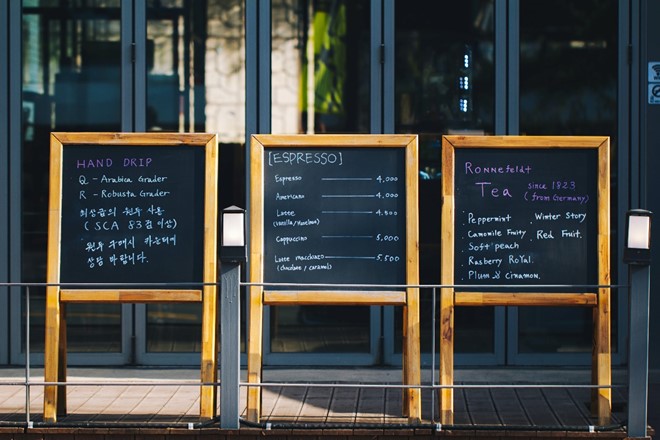 HAND DRIP
Q - Arabica Grader
R - Robusta Grader
최상급의 원두 사용
( SCA 83점 이상)
원두 구매시 카운터에
상담 바랍니다.
[ESPRESSO]
Espresso 4,000
Americano 4,000
Latte 4,500
(Vanilla/Hazelnut)
Cappuccino 5,000
Latte macchiato 5,500
(chocolate / caramel)
Ronnefeldt
Tea since 1823
(from Germany)
Peppermint
Camomile Fruity
Soft peach
Rasberry RoYal.
Plum & Cinnamon.
Winter Story
Red Fruit.